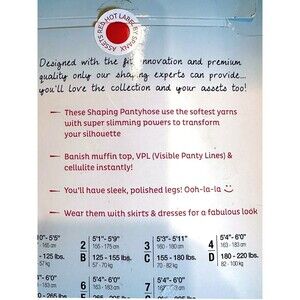 ASSETS RED HOT LABEL BY SPANX
Designed with the fit innovation and premium
quality only our shaping experts can provide...
you'll love the collection and your assets too!
— These Shaping Pantyhose use the softest yarns
with super slimming powers to transform
your silhouette
— Banish muffin top, VPL (Visible Panty Lines) &
cellulite instantly!
— You'll have sleek, polished legs! Ooh-la-la
— Wear them with skirts & dresses for a fabulous look
0"- 5'5" 2 5'1"- 5'9" 3 5'3"- 5'11" 4 5'4"- 6'0"
165 cm 155 - 175 cm 160 - 180 cm D 163 - 183 cm
- 125 lbs. B 125 - 155 lbs. C 155 - 180 lbs. 180 - 220 lbs.
57 kg 57 - 70 kg 70 - 82 kg 82 - 100 kg
5'4"- 6'0" 6 5'4"- 6'0" 7 5'4"- 6'0"
163 - 183 cm 163 - 183 cm